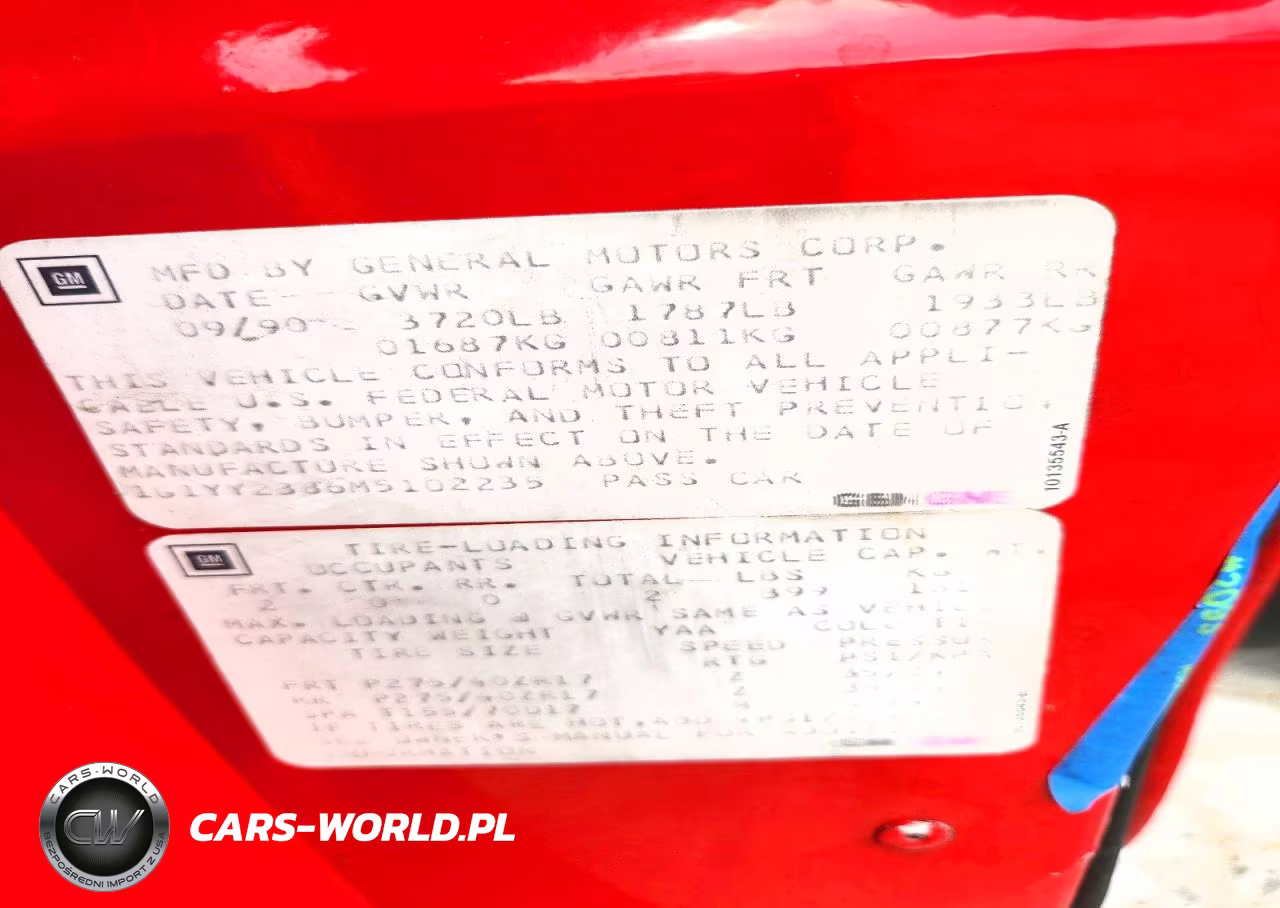 GM
MFD BY GENERAL MOTORS CORP.
DATE GVWR GAWR FRT GAWR RR
09/90 3720LB 1787LB 1933LB
01687KG 00811KG 00877KG
THIS VEHICLE CONFORMS TO ALL APPLI-
CABLE U.S. FEDERAL MOTOR VEHICLE
SAFETY, BUMPER, AND THEFT PREVENTIO
STANDARDS IN EFFECT ON THE DATE OF
MANUFACTURE SHOWN ABOVE.
PASS CAR
10135543-A
GM
TIRE-LOADING INFORMATION
OCCUPANTS VEHICLE CAP.
FRT. CTR. RR. TOTAL LBS KG
2 0 0 2 399
MAX. LOADING @ GVWR SAME AS
CAPACITY WEIGHT YAA
TIRE SIZE SPEED
RTG
FRT P275/40ZR17 Z
RR P275/40ZR17 Z
SPA T155/70D17 M
IF TIRES ARE HOT, ADD
OWNER'S MANUAL FOR
CARS-WORLD
CW
BEZPOŚREDNI IMPORT Z USA
CARS-WORLD.PL